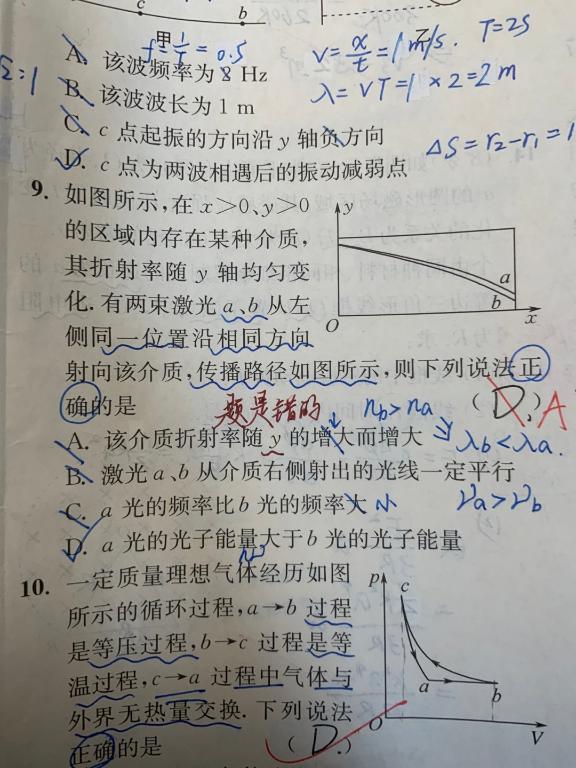 c
b
甲
乙
f=1/T=0.5
v=x/t=1m/s. T=2S
A. 该波频率为8 Hz
λ=vT=1×2=2m
B. 该波波长为1 m
C. c点起振的方向沿y轴负方向
ΔS=r₂-r₁=1
D. c点为两波相遇后的振动减弱点
9. 如图所示,在x>0、y>0
的区域内存在某种介质,
其折射率随y轴均匀变
化. 有两束激光a、b从左
侧同一位置沿相同方向
y
a
b
O
x
射向该介质,传播路径如图所示,则下列说法正
确的是
题是错的
n_b>n_a
(D.)A
A. 该介质折射率随y的增大而增大
λb<λa.
B. 激光a、b从介质右侧射出的光线一定平行
C. a光的频率比b光的频率大 小
νa>νb
D. a光的光子能量大于b光的光子能量
10. 一定质量理想气体经历如图
所示的循环过程,a→b过程
是等压过程,b→c过程是等
温过程,c→a过程中气体与
外界无热量交换. 下列说法
正确的是 (D.)
p
c
a
b
O
V